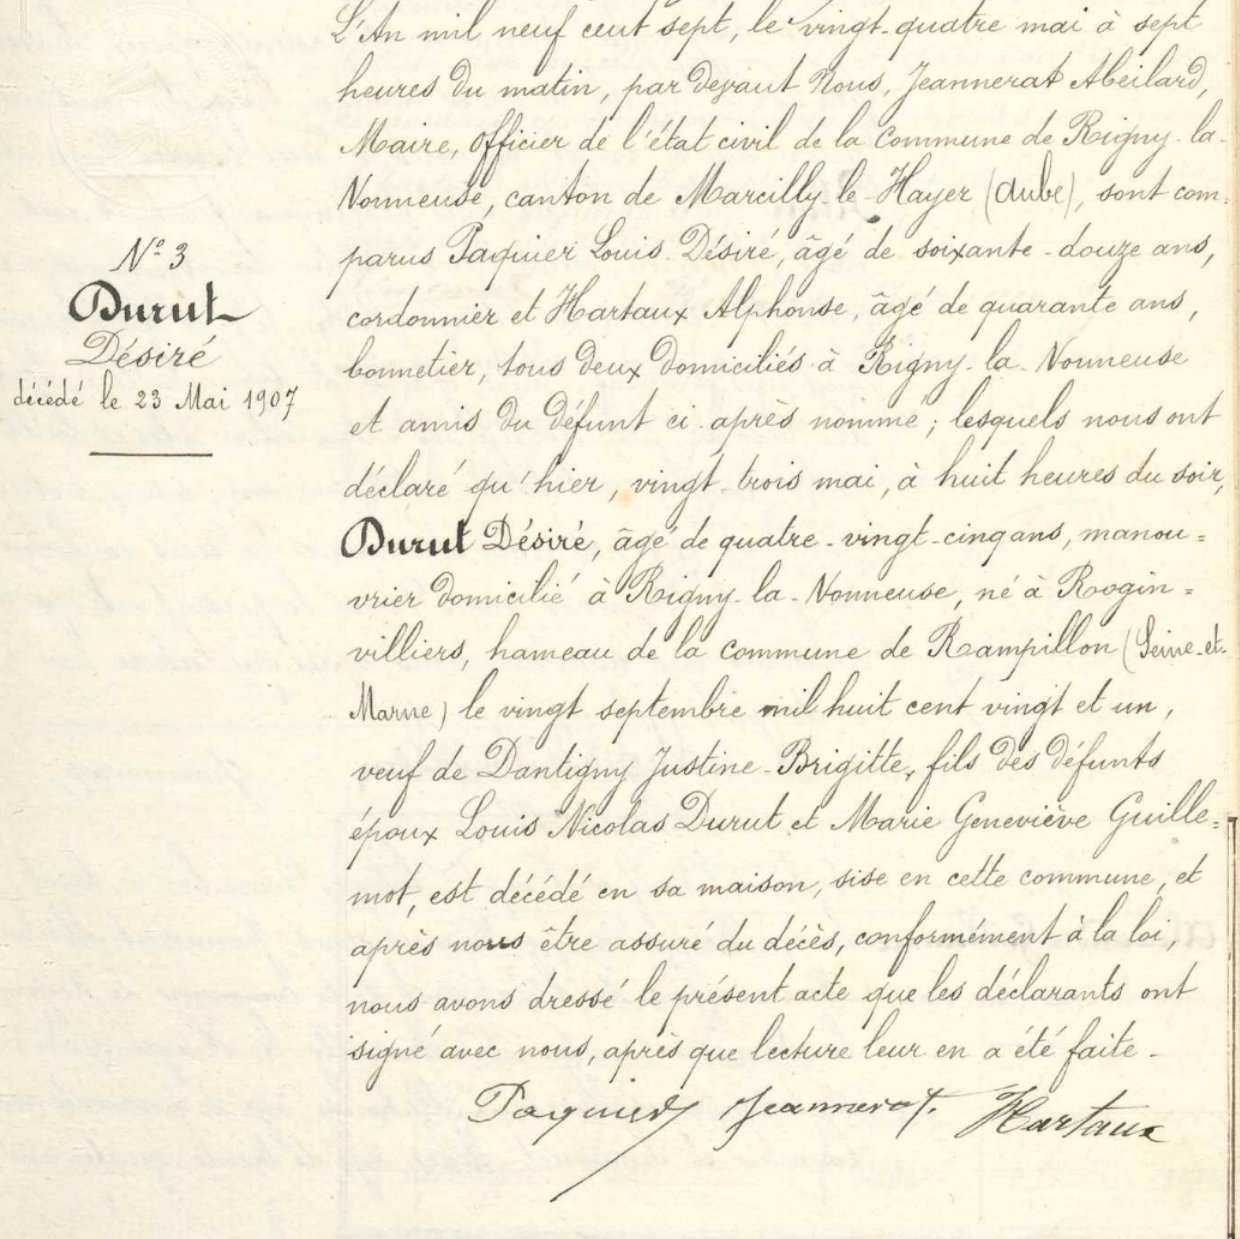 L'An mil neuf cent sept, le vingt-quatre mai à sept
heures du matin, par devant Nous, Jeannerat Abeilard,
Maire, officier de l'état civil de la commune de Rigny-la-
Nonneuse, canton de Marcilly-le-Hayer (Aube), sont com=
parus Paquier Louis Désiré, âgé de soixante-douze ans,
cordonnier et Hartaux Alphonse, âgé de quarante ans,
bonnetier, tous deux domiciliés à Rigny-la-Nonneuse
et amis du défunt ci-après nommé; lesquels nous ont
déclaré qu'hier, vingt-trois mai, à huit heures du soir,
Durut Désiré, âgé de quatre-vingt-cinq ans, manou=
vrier domicilié à Rigny-la-Nonneuse, né à Rogin=
villiers, hameau de la commune de Rampillon (Seine-et-
Marne) le vingt septembre mil huit cent vingt et un,
veuf de Dantigny Justine-Brigitte, fils des défunts
époux Louis Nicolas Durut et Marie Geneviève Guille=
mot, est décédé en sa maison, sise en cette commune, et
après nous être assuré du décès, conformément à la loi,
nous avons dressé le présent acte que les déclarants ont
signé avec nous, après que lecture leur en a été faite.
Paquier Jeannerat. Hartaux
N° 3
Durut
Désiré
décédé le 23 Mai 1907